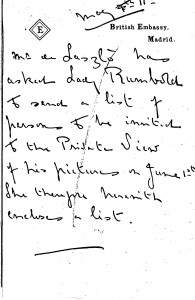 May 8th 11
E
British Embassy,
Madrid.
Mr de László has
asked Lady Rumbold
to send a list of
persons to be invited
to the Private View
of his pictures on June 1st
She therefore herewith
encloses a list.